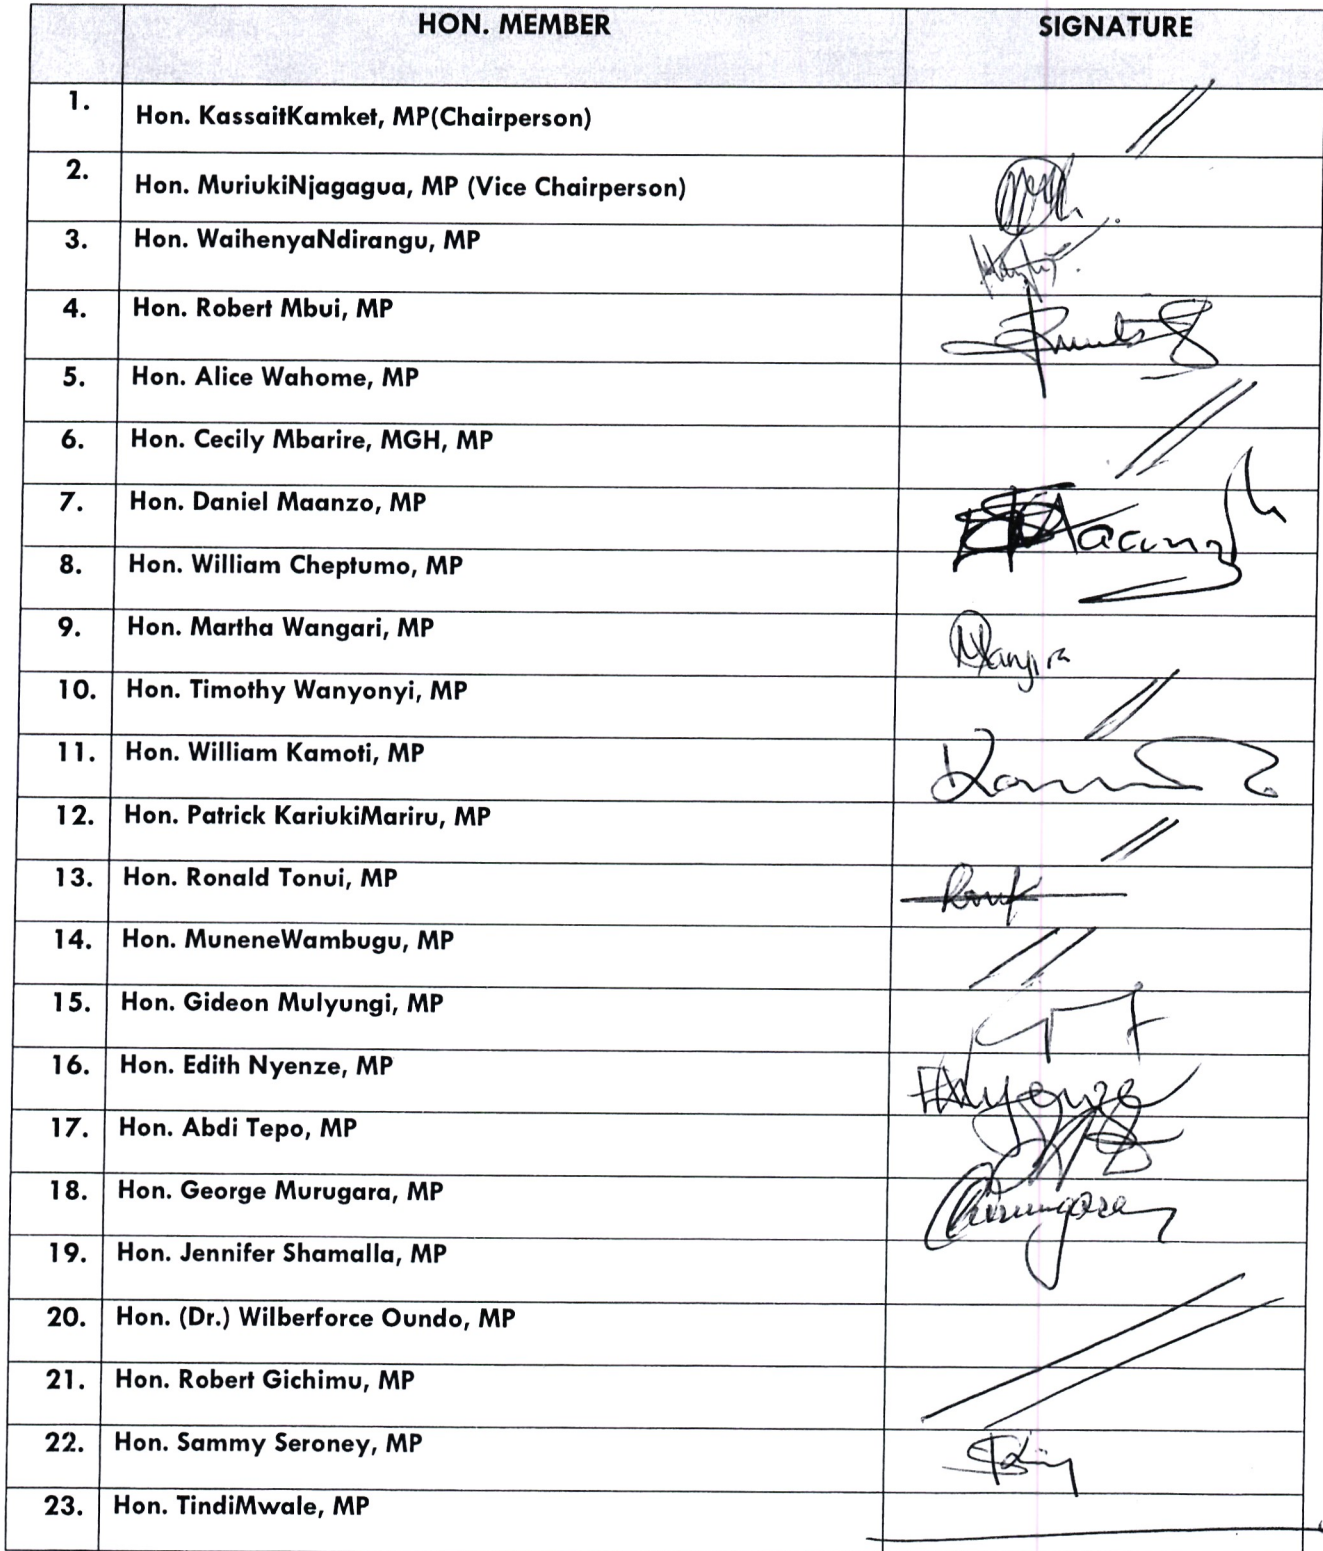 HON. MEMBER SIGNATURE
1. Hon. KassaitKamket, MP(Chairperson)
2. Hon. MuriukiNjagagua, MP (Vice Chairperson)
3. Hon. WaihenyaNdirangu, MP
4. Hon. Robert Mbui, MP
5. Hon. Alice Wahome, MP
6. Hon. Cecily Mbarire, MGH, MP
7. Hon. Daniel Maanzo, MP
8. Hon. William Cheptumo, MP
9. Hon. Martha Wangari, MP
10. Hon. Timothy Wanyonyi, MP
11. Hon. William Kamoti, MP
12. Hon. Patrick KariukiMariru, MP
13. Hon. Ronald Tonui, MP
14. Hon. MuneneWambugu, MP
15. Hon. Gideon Mulyungi, MP
16. Hon. Edith Nyenze, MP
17. Hon. Abdi Tepo, MP
18. Hon. George Murugara, MP
19. Hon. Jennifer Shamalla, MP
20. Hon. (Dr.) Wilberforce Oundo, MP
21. Hon. Robert Gichimu, MP
22. Hon. Sammy Seroney, MP
23. Hon. TindiMwale, MP